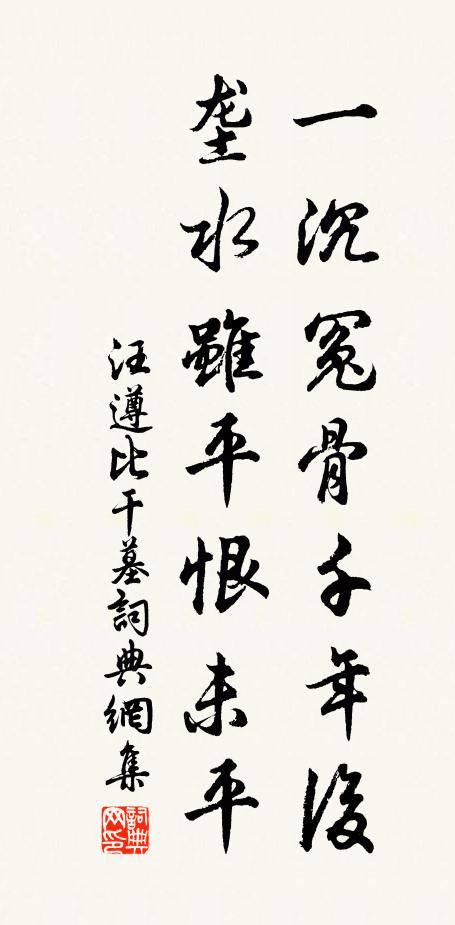 一沉冤骨千年後
垄水雖平恨未平
汪遵比干墓詞典網集
詞典网印